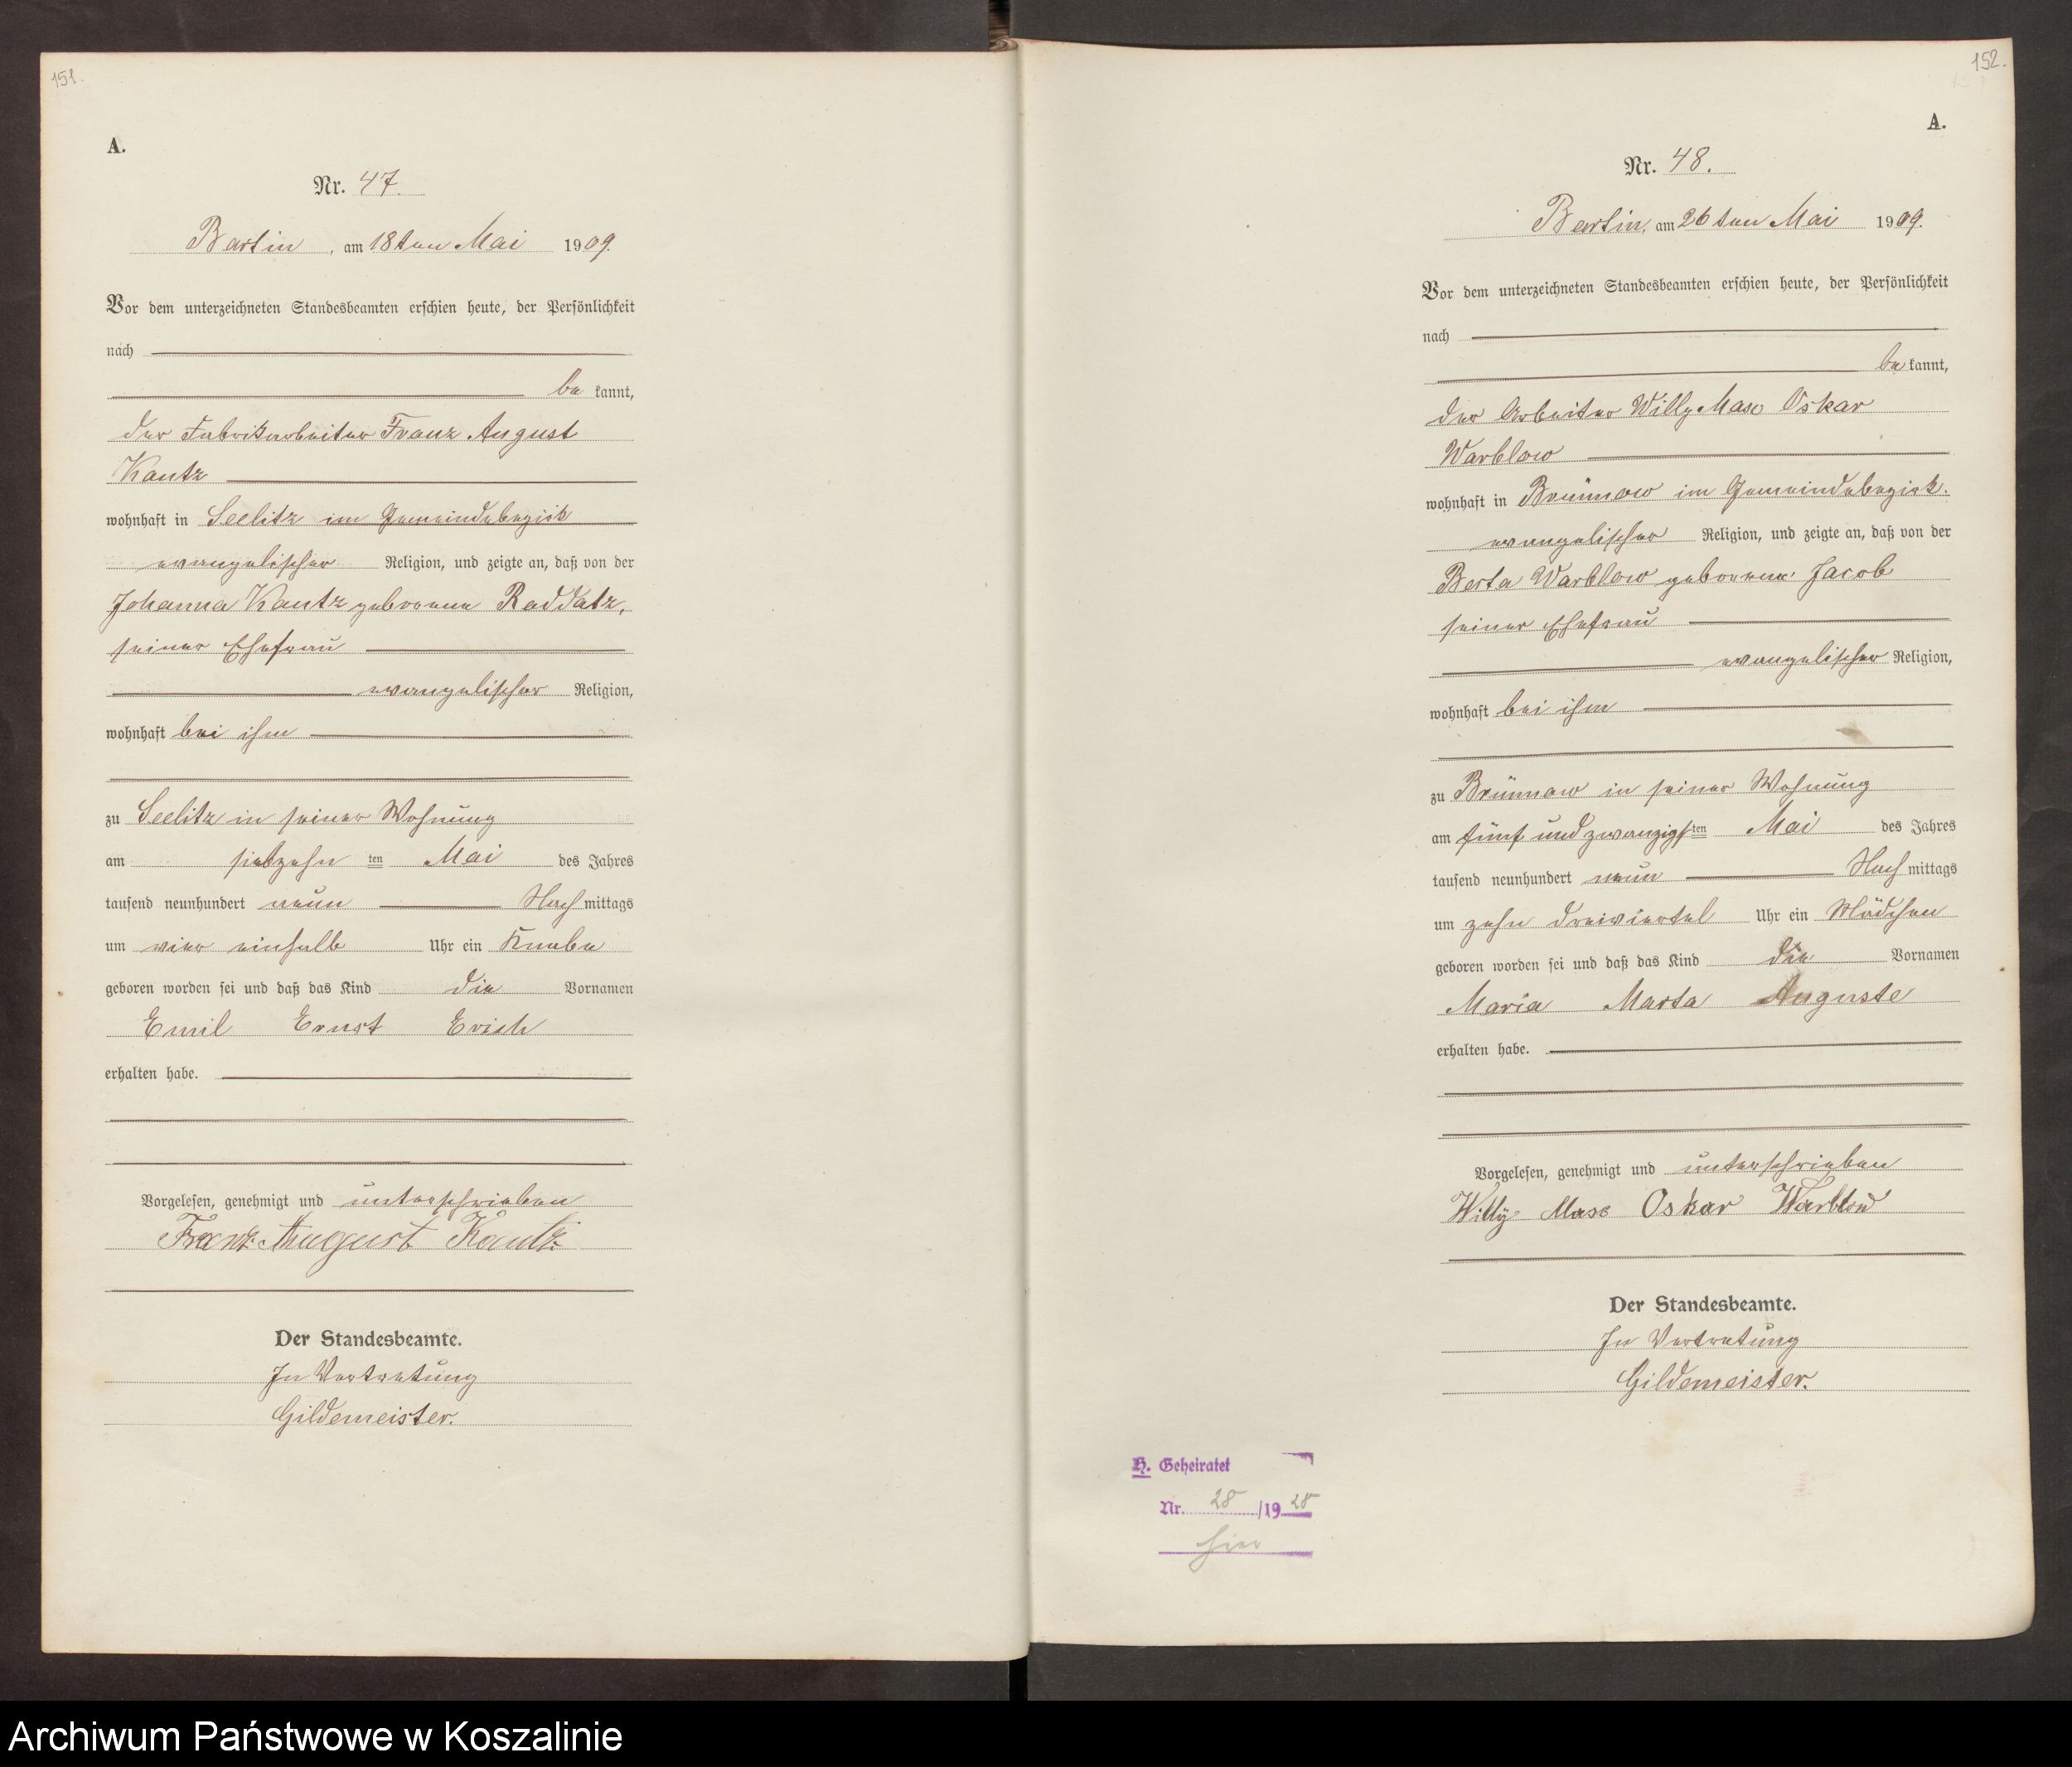 151.
A.
Nr. 47.
Bartin, am 18ten Mai 1909.
Vor dem unterzeichneten Standesbeamten erschien heute, der Persönlichkeit
nach
be kannt,
der Fabrikarbeiter Franz August
Kautz
wohnhaft in Seelitz im Gemeindebezirk
evangelischer Religion, und zeigte an, daß von der
Johanna Kautz geborene Raddatz,
seiner Ehefrau
evangelischer Religion,
wohnhaft bei ihm
zu Seelitz in seiner Wohnung
am siebzehn ten Mai des Jahres
tausend neunhundert neun Nach mittags
um vier einhalb Uhr ein Knabe
geboren worden sei und daß das Kind die Vornamen
Emil Ernst Erich
erhalten habe.
Vorgelesen, genehmigt und unterschrieben
Franz August Kautz
Der Standesbeamte.
In Vertretung
Gildemeister.
152.
A.
Nr. 48.
Bartin, am 26ten Mai 1909.
Vor dem unterzeichneten Standesbeamten erschien heute, der Persönlichkeit
nach
be kannt,
der Arbeiter Willy Max Oskar
Warblow
wohnhaft in Brünnow im Gemeindebezirk.
evangelischer Religion, und zeigte an, daß von der
Berta Warblow geborene Jacob
seiner Ehefrau
evangelischer Religion,
wohnhaft bei ihm
zu Brünnow in seiner Wohnung
am fünf und zwanzigsten Mai des Jahres
tausend neunhundert neun Nach mittags
um zehn dreiviertel Uhr ein Mädchen
geboren worden sei und daß das Kind die Vornamen
Maria Marta Auguste
erhalten habe.
Vorgelesen, genehmigt und unterschrieben
Willy Max Oskar Warblow
Der Standesbeamte.
In Vertretung
Gildemeister.
H. Geheiratet
Nr. 28 /19 28
hier
Archiwum Państwowe w Koszalinie